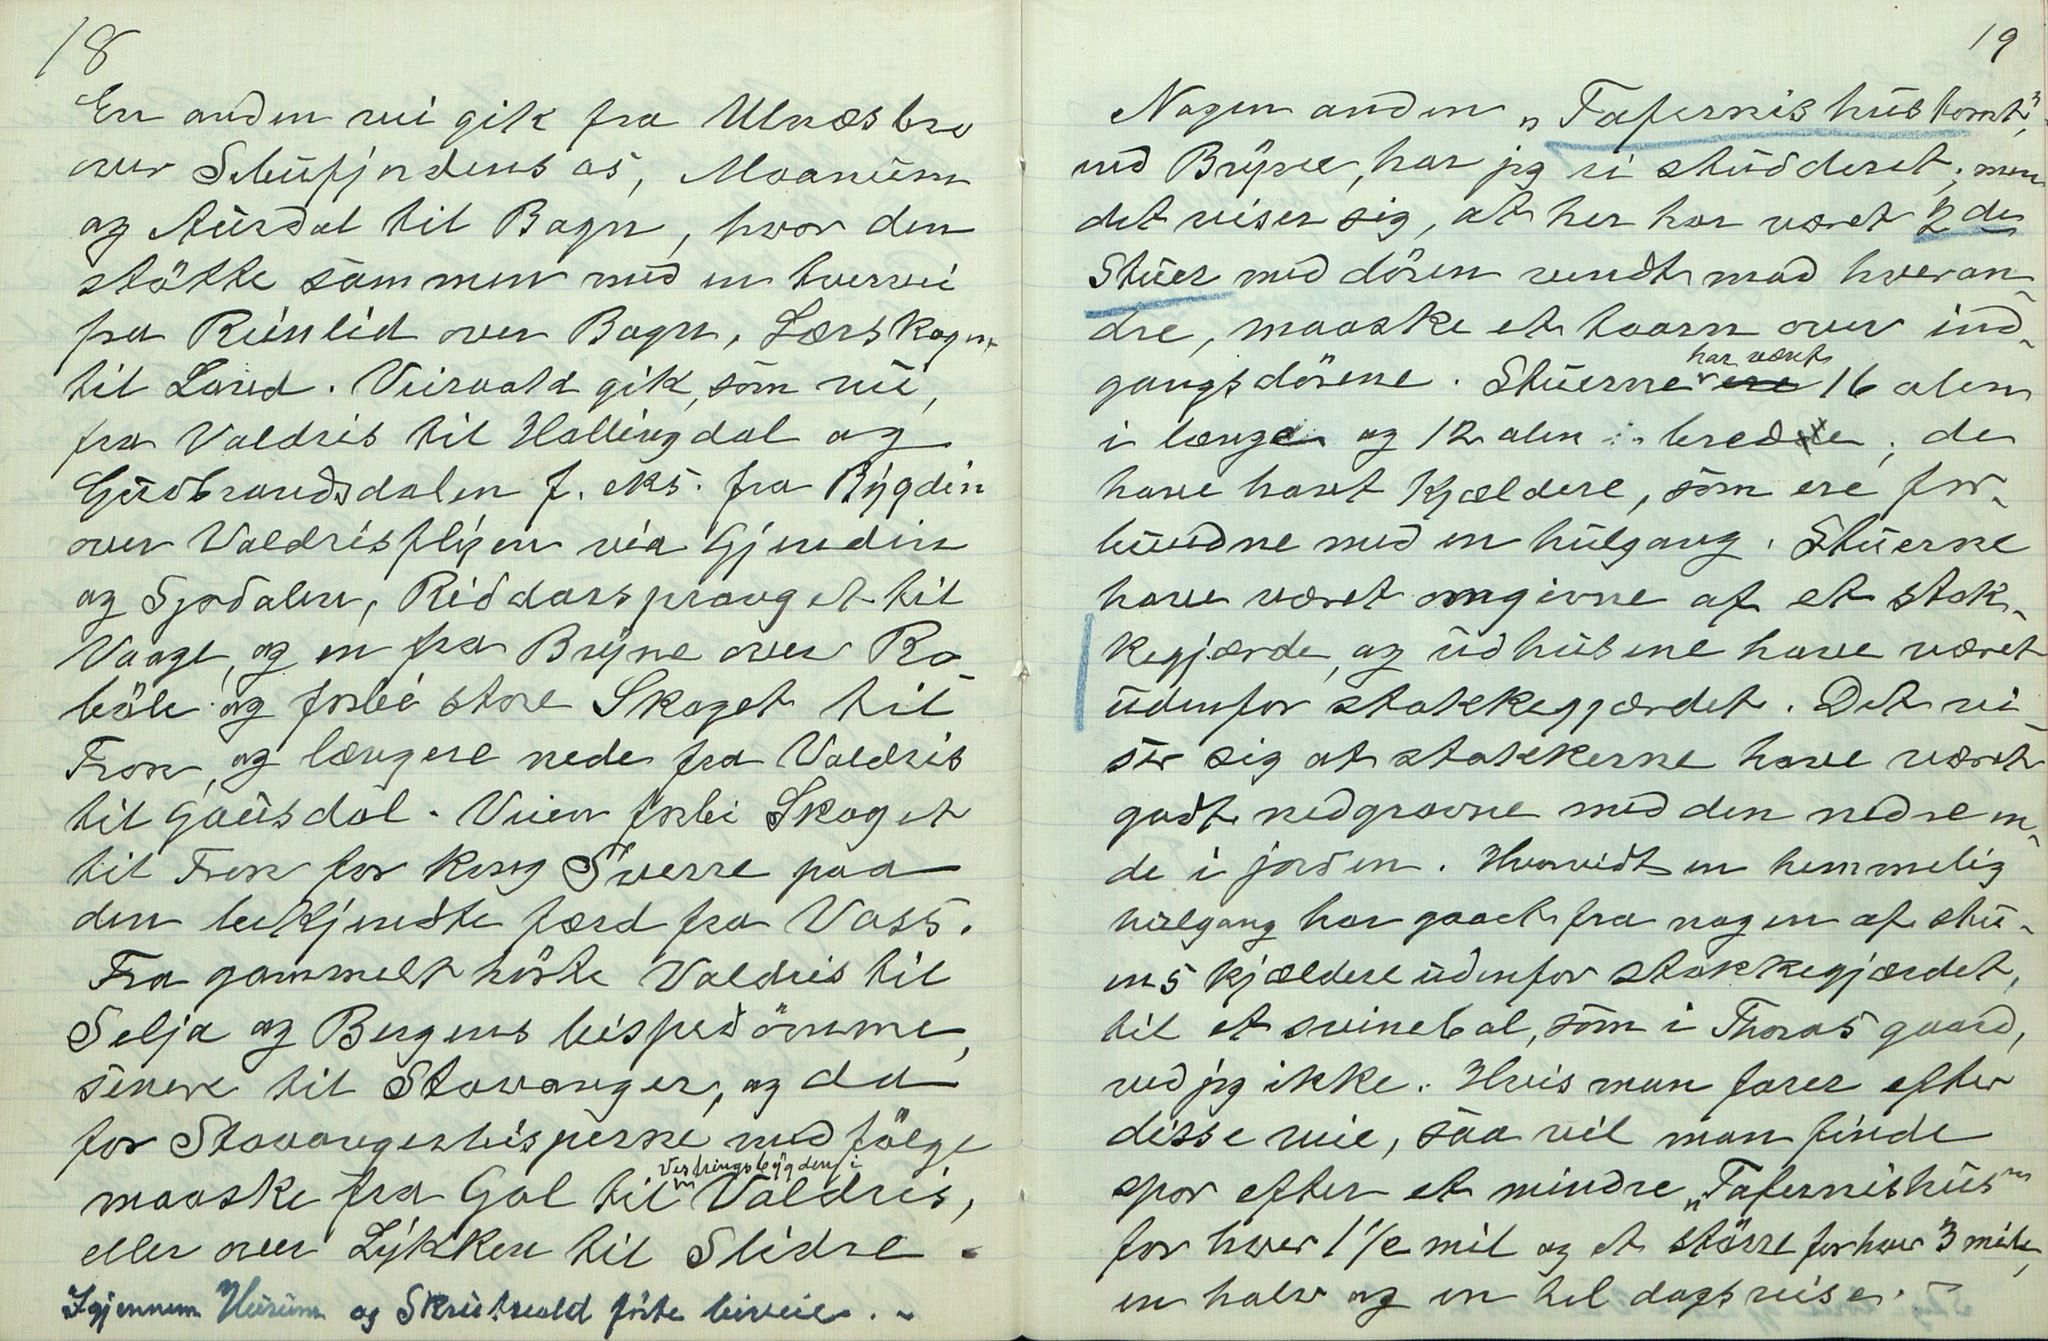 18
En anden vei gik fra Ulnæsbro
over Sebüfjordens ås, Moanüm
og Aürdal til Bagn, hvor den
stötte sammen med en tverrvei
fra Reinlid over Bagn, Lærskogen
til Land. Veirvald gik, som nü,
fra Valdris til Hallingdal og
Güdbrandsdalen f. eks. fra Bÿgdin
over Valdrisflÿen via Gjendin
og Sjodalen, Riddarspranget til
Vaage, og en fra Brÿne over Ro-
böle og forbi store Skaget til
Fron, og længere nede fra Valdris
til Gaüsdal. Veien forbi Skaget
til Fron for kong Sverre paa
den bekjendte færd fra Vass.
Fra gammelt hörte Valdris til
Selja og Bergens bispedömme,
senere til Stavanger, og da
for Stavangerbisperne med fölge
maaske fra Gol til Vestringsbÿgden i Valdris,
eller over Lÿkken til Slidre.
Igjennem Hürüm og Skrütvald förte biveie. -
19
Nogen anden „Tafernishüstomt",
ved Brÿne, har jeg ei stüderet; men
det viser sig, at her har været 2 de
Stüer med dören vendt mod hveran-
dre, maaske et taarn over ind-
gangsdörene. Stüerne har været ere 16 alen
i længe og 12 alen i bredde; de
have havt kjældere, som ere for-
bündne med en hülgang. Stüerne
have været omgivne af et stok-
kegjærde, og üdhüsene have været
üdenfor stokkegjærdet. Det vi-
ser sig at stokkerne have været
godt nedgravne med den nedre en-
de i jorden. Hvorvidt en hemmelig
hülgang har gaaet fra nogen af stü-
ens kjældere üdenfor stokkegjærdet,
til et svinebøl, som i Thoras gaard,
ved jeg ikke. Hvis man farer efter
disse veie, saa vil man finde
spor efter et mindre „Tafernishüs"
for hver 1 1/2 mil og et större for hver 3 mile,
en halv og en hel dagsreise. -